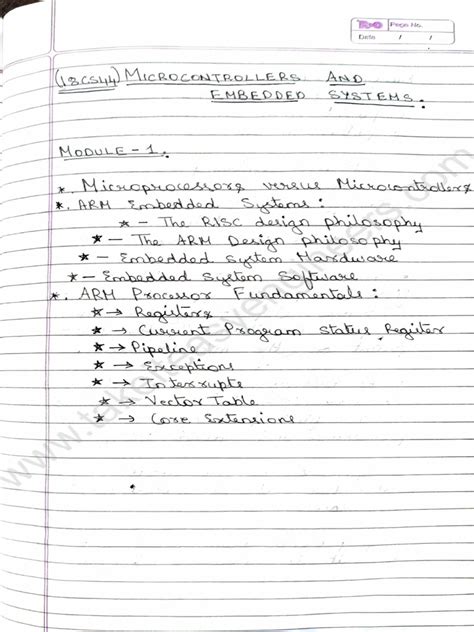 Page No.
Date / /
(18CS44) MICROCONTROLLERS AND
EMBEDDED SYSTEMS.
MODULE - 1.
*. Microprocessors versus Microcontrollers
*. ARM Embedded Systems :
* - The RISC design philosophy
* - The ARM Design philosophy
* - Embedded System Hardware
* - Embedded System Software
*. ARM Processor Fundamentals :
* → Registers
* → Current Program Status Register
* → Pipeline
* → Exceptions
* → Interrupts
* → Vector Table
* → Core Extensions
www.takeiteasyengineers.com